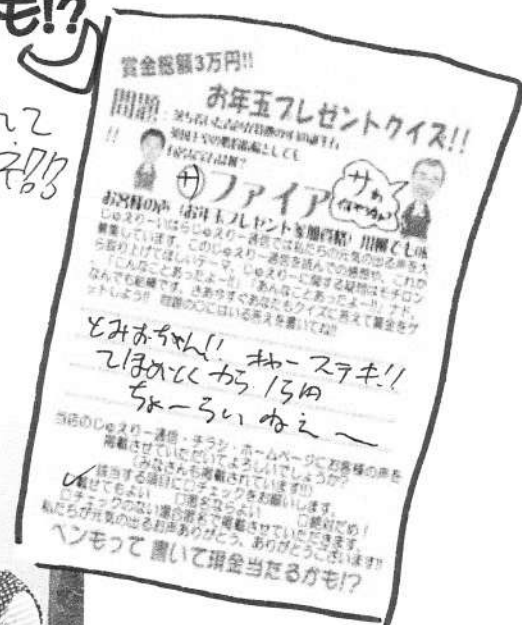 も!?
賞金総額3万円!!
お年玉プレゼントクイズ!!
問題:
!!
サファイア
サぁ
お客様の声(お年玉プレゼント参加資格)
じゅえりーいはらじゅえりー通信では私たちの元気の出る声を大
募集しています。このじゅえりー通信を読んでの感想や、これか
ら取り上げてほしいテーマ、じゅえりーに関する疑問はモチロン
、「こんなことあったよー!!」「あんなことあったよー!!」ナド、
なんでも結構です。さあ今すぐあなたもクイズに答えて賞金をゲ
ットしよう!! 問題の○にはいる答えを書いてね!!
とみおちゃん!! きゃー ステキ!!
てほめとくから 15円
ちょーらいねぇ〜
当店のじゅえりー通信・チラシ・ホームページにお客様の声を
掲載させていただいてよろしいでしょうか?
(みなさんも掲載されています!!)
該当する項目に□チェックをお願いします。
□載せてもよい □匿名ならよい □絶対だめ!
□チェックのない場合匿名で掲載させていただきます。
私たちが元気の出るお声ありがとう、ありがとうございます!!
ペンもって 書いて現金当たるかも!?